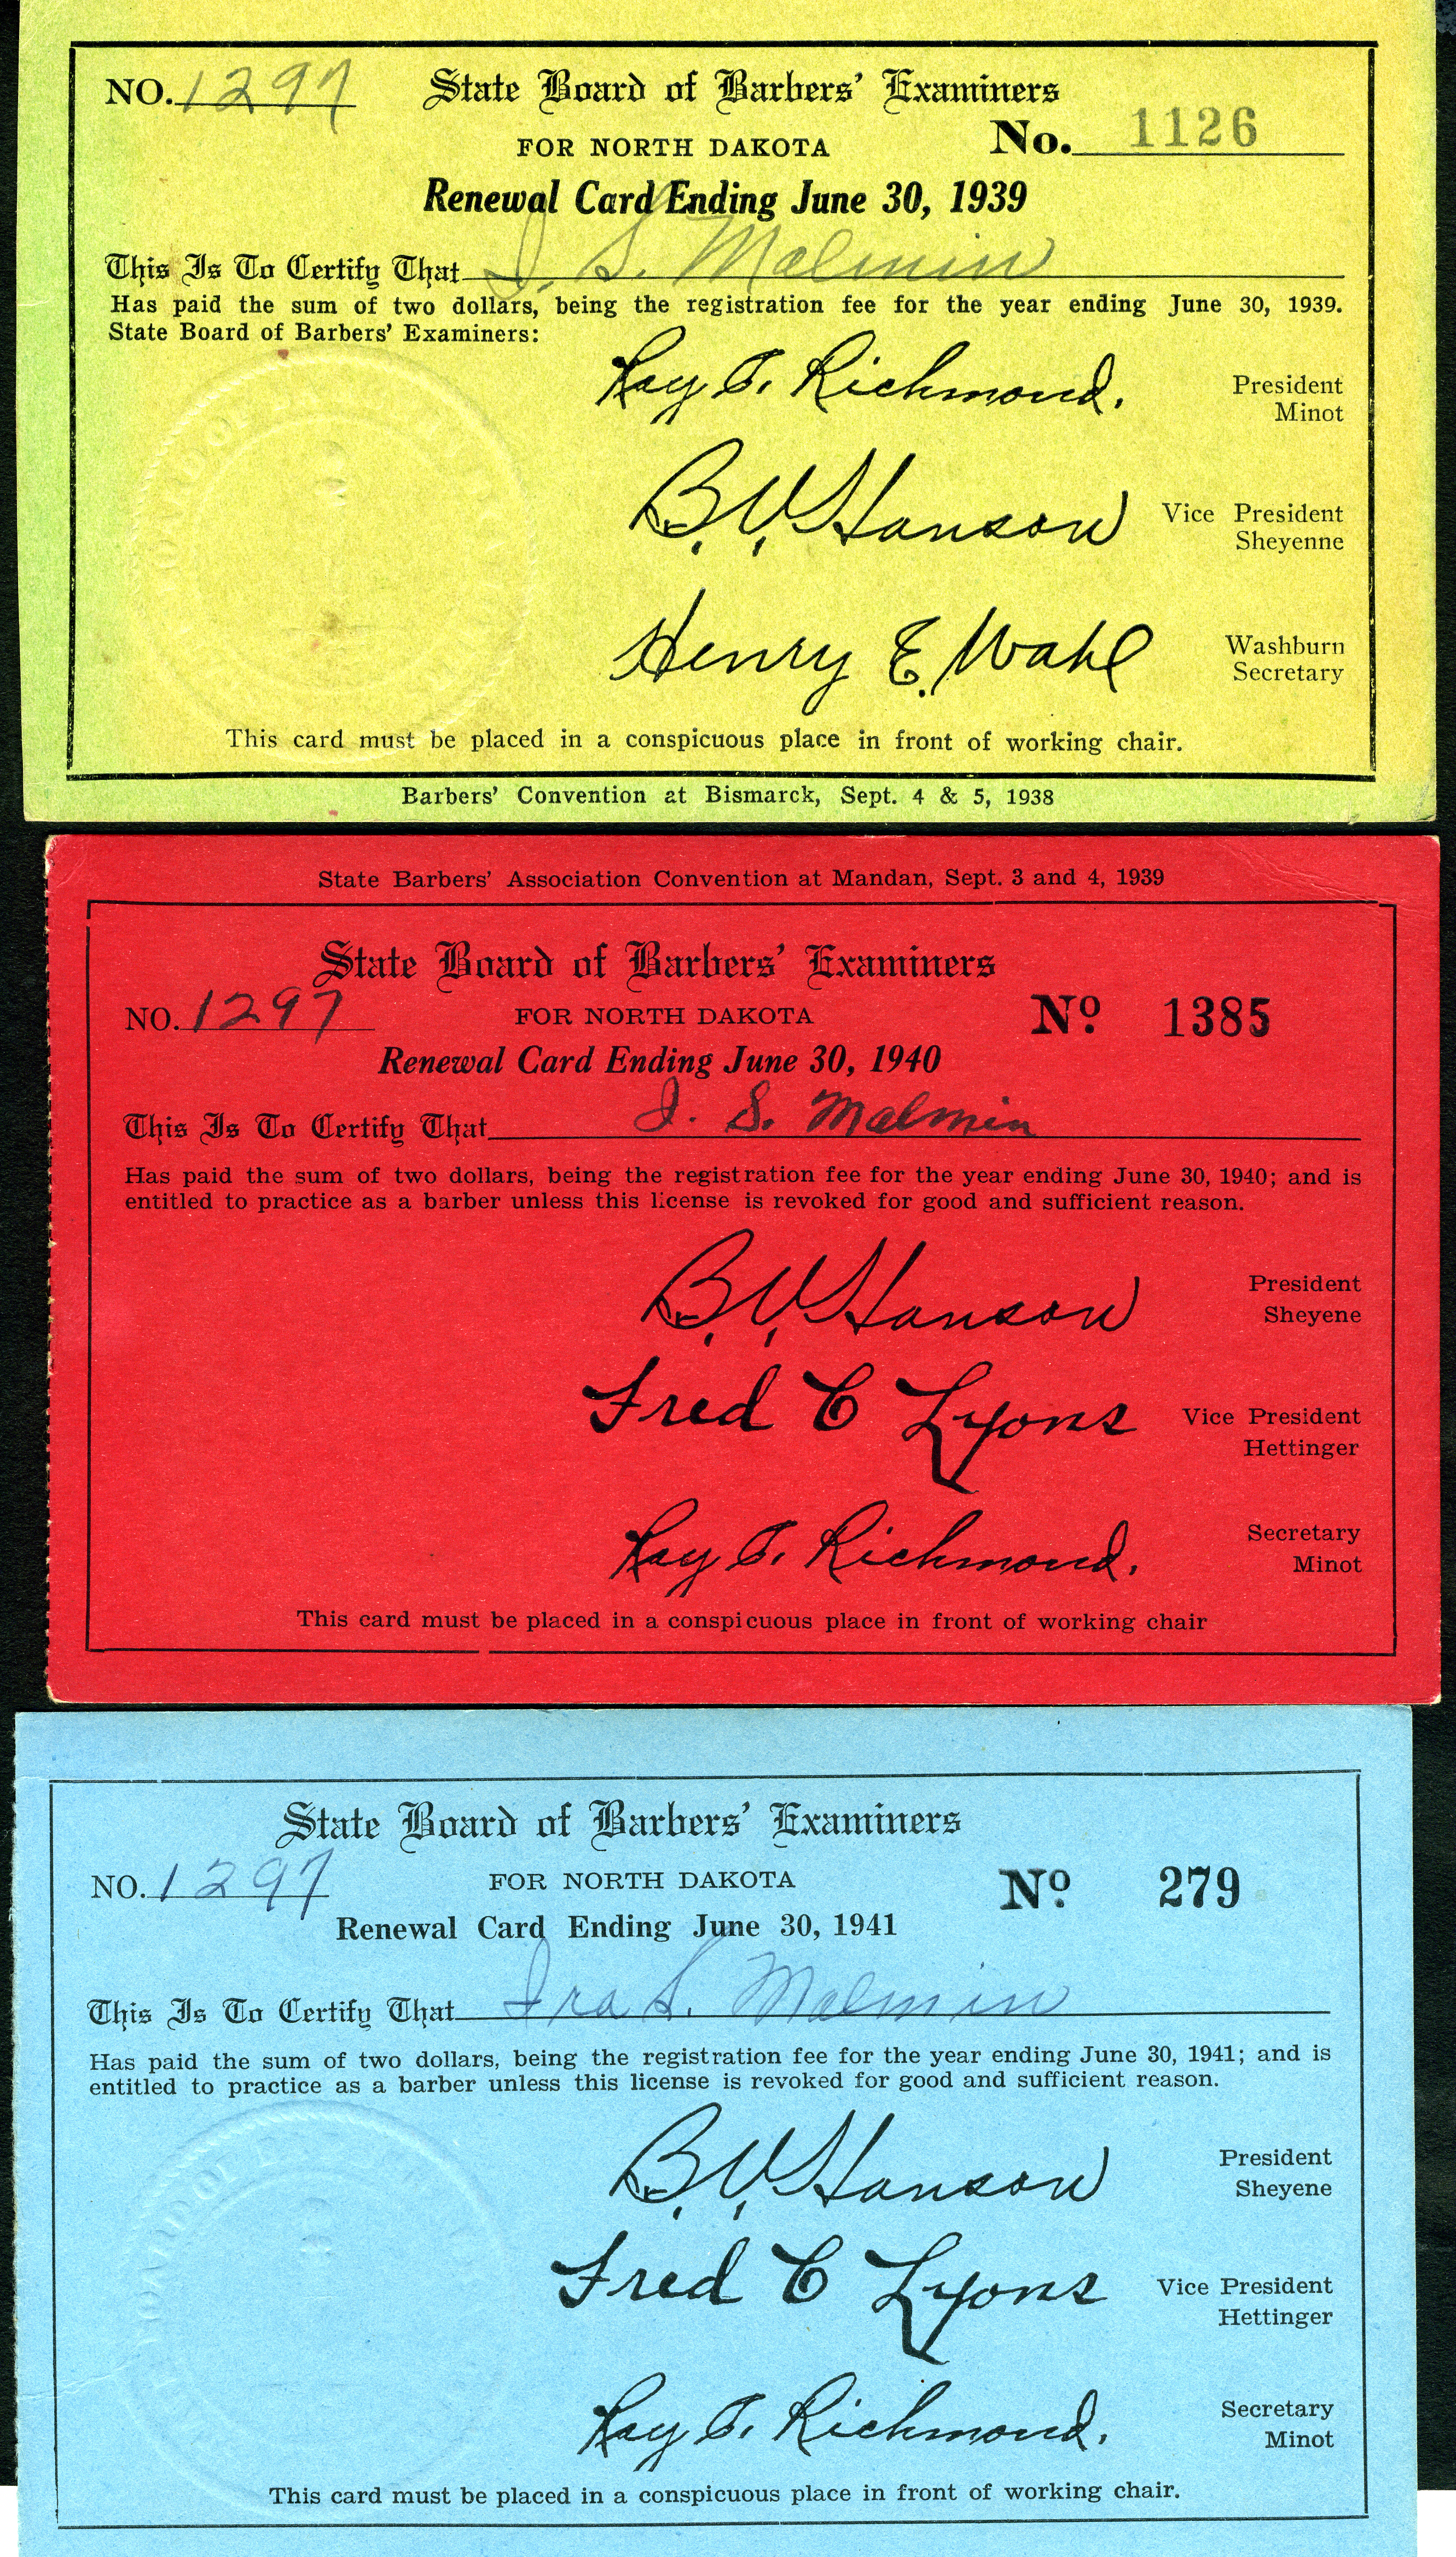 NO. 1297 State Board of Barbers' Examiners
FOR NORTH DAKOTA No. 1126
Renewal Card Ending June 30, 1939
This Is To Certify That I. S. Malmin
Has paid the sum of two dollars, being the registration fee for the year ending June 30, 1939.
State Board of Barbers' Examiners:
Ray T. Richmond. President
Minot
B. V. Hanson Vice President
Sheyenne
Henry E. Wahl Washburn
Secretary
This card must be placed in a conspicuous place in front of working chair.
Barbers' Convention at Bismarck, Sept. 4 & 5, 1938
State Barbers' Association Convention at Mandan, Sept. 3 and 4, 1939
State Board of Barbers' Examiners
NO. 1297 FOR NORTH DAKOTA Nº 1385
Renewal Card Ending June 30, 1940
This Is To Certify That I. S. Malmin
Has paid the sum of two dollars, being the registration fee for the year ending June 30, 1940; and is
entitled to practice as a barber unless this license is revoked for good and sufficient reason.
B. V. Hanson President
Sheyene
Fred C Lyons Vice President
Hettinger
Ray T. Richmond. Secretary
Minot
This card must be placed in a conspicuous place in front of working chair
State Board of Barbers' Examiners
NO. 1297 FOR NORTH DAKOTA Nº 279
Renewal Card Ending June 30, 1941
This Is To Certify That Ira S. Malmin
Has paid the sum of two dollars, being the registration fee for the year ending June 30, 1941; and is
entitled to practice as a barber unless this license is revoked for good and sufficient reason.
B. V. Hanson President
Sheyene
Fred C Lyons Vice President
Hettinger
Ray T. Richmond. Secretary
Minot
This card must be placed in a conspicuous place in front of working chair.